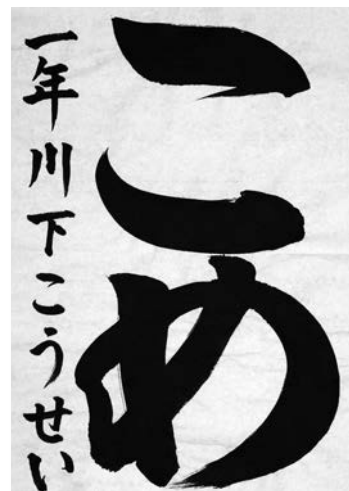 こめ
一年川下こうせい